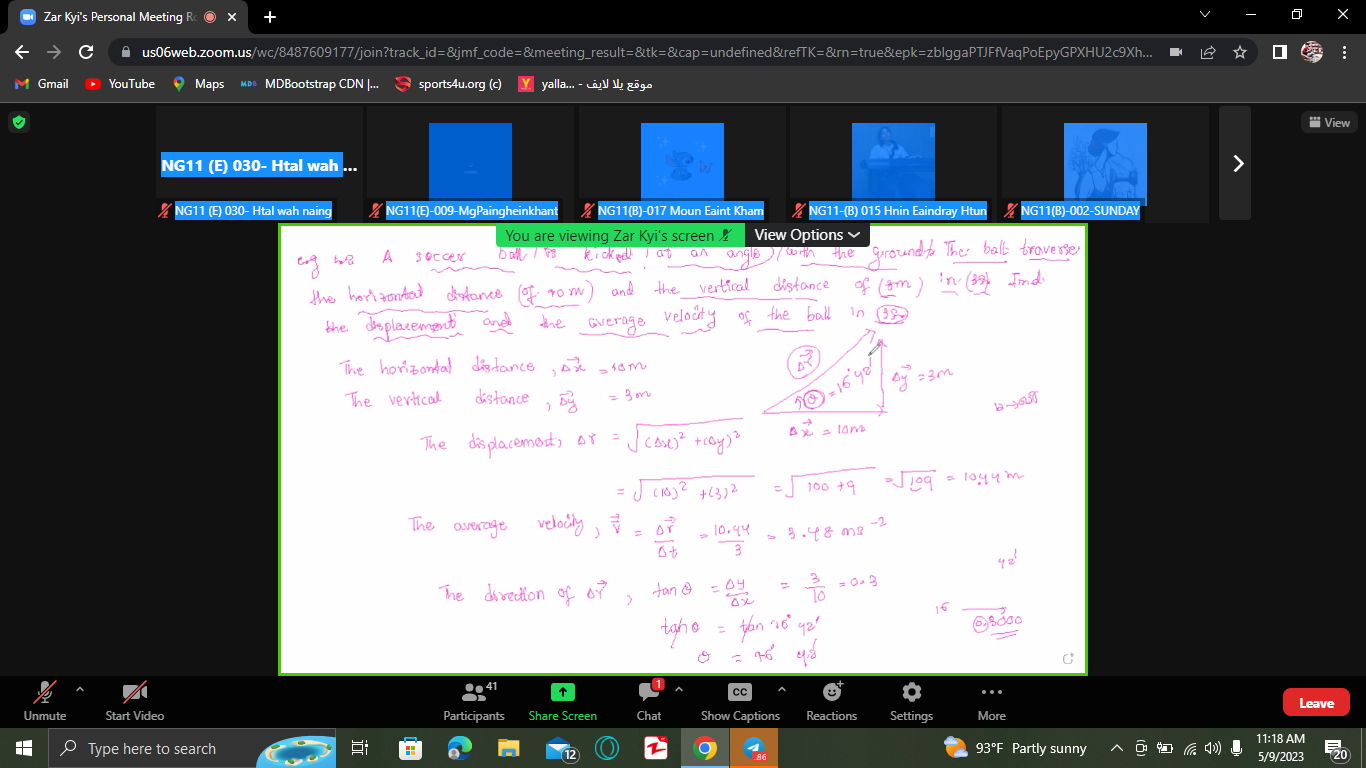 Zar Kyi's Personal Meeting R
us06web.zoom.us/wc/8487609177/join?track_id=&jmf_code=&meeting_result=&tk=&cap=undefined&refTK=&rn=true&epk=zbIggaPTJFfVaqPoEpyGPXHU2c9Xh...
Gmail YouTube Maps MDB MDBootstrap CDN |... sports4u.org (c) Y yalla... - موقع يلا لايف
View
NG11 (E) 030- Htal wah ...
NG11 (E) 030- Htal wah naing NG11(E)-009-MgPaingheinkhant NG11(B)-017 Moun Eaint Kham NG11-(B) 015 Hnin Eaindray Htun NG11(B)-002-SUNDAY
You are viewing Zar Kyi's screen View Options
A soccer ball is kicked at an angle with the ground. The ball traverse
the horizontal distance (of 10 m) and the vertical distance of (3m) in Find
the displacement and the average velocity of the ball in
The horizontal distance, Δx⃗ = 10m
The vertical distance, Δy⃗ = 3m
Δr⃗
θ = 16° 42'
Δy⃗ = 3m
Δx⃗ = 10m
The displacement, Δr = √(Δx)² + (Δy)²
= √(10)² + (3)² = √100 + 9 = √109 = 10.44 m
The average velocity, v⃗ = Δr⃗/Δt = 10.44/3 = 3.48 ms⁻²
The direction of Δr⃗, tan θ = Δy/Δx = 3/10 = 0.3
tan θ = tan 16° 42'
θ = 16° 42'
42'
16 0.3000
Unmute Start Video Participants 41 Share Screen Chat 1 CC Show Captions Reactions Settings More Leave
Type here to search 12 .86 93°F Partly sunny 11:18 AM
5/9/2023 20